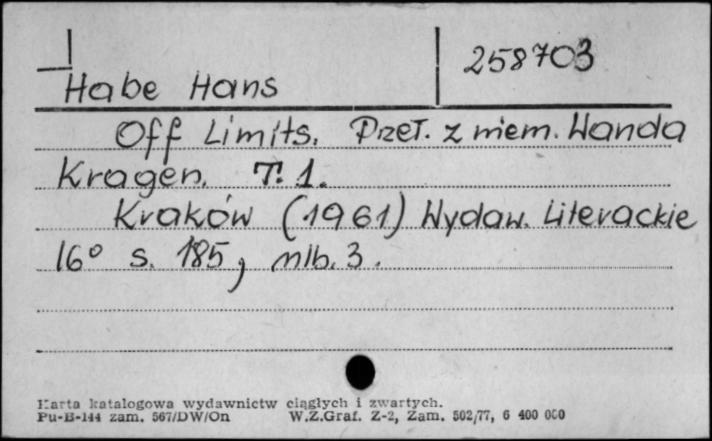 258703
Habe Hans
Off Limits. Przeł. z niem. Wanda
Kragen. T. 1.
Kraków (1961) Wydaw. Literackie
16° s. 185, nlb. 3.
Karta katalogowa wydawnictw ciągłych i zwartych.
Pu-B-144 zam. 567/DW/On W.Z.Graf. Z-2, Zam. 502/77, 6 400 000